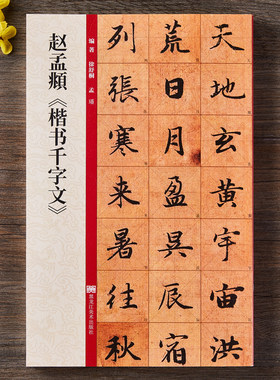 天地玄黄宇宙洪
荒日月盈昃辰宿
列張寒来暑往秋
编著
赵孟頫《楷书千字文》
黑龙江美术出版社